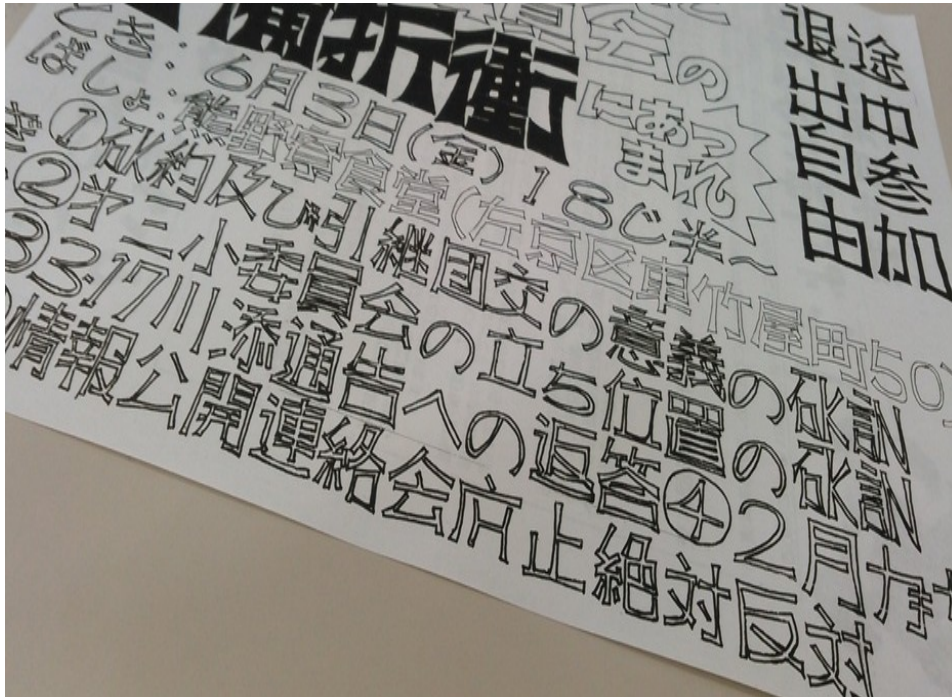 途中参加
退出自由
会の
にあつ
まれ
備折衝
とき:6月3日(金)18じ半〜
ばしょ:熊野寮食堂(左京区東竹屋町50
①確約及び引継団交の意義の確認
②第三小委員会の立ち位置の確認
③3.17川添通告への返答④2月
情報公開連絡会廃止絶対反対